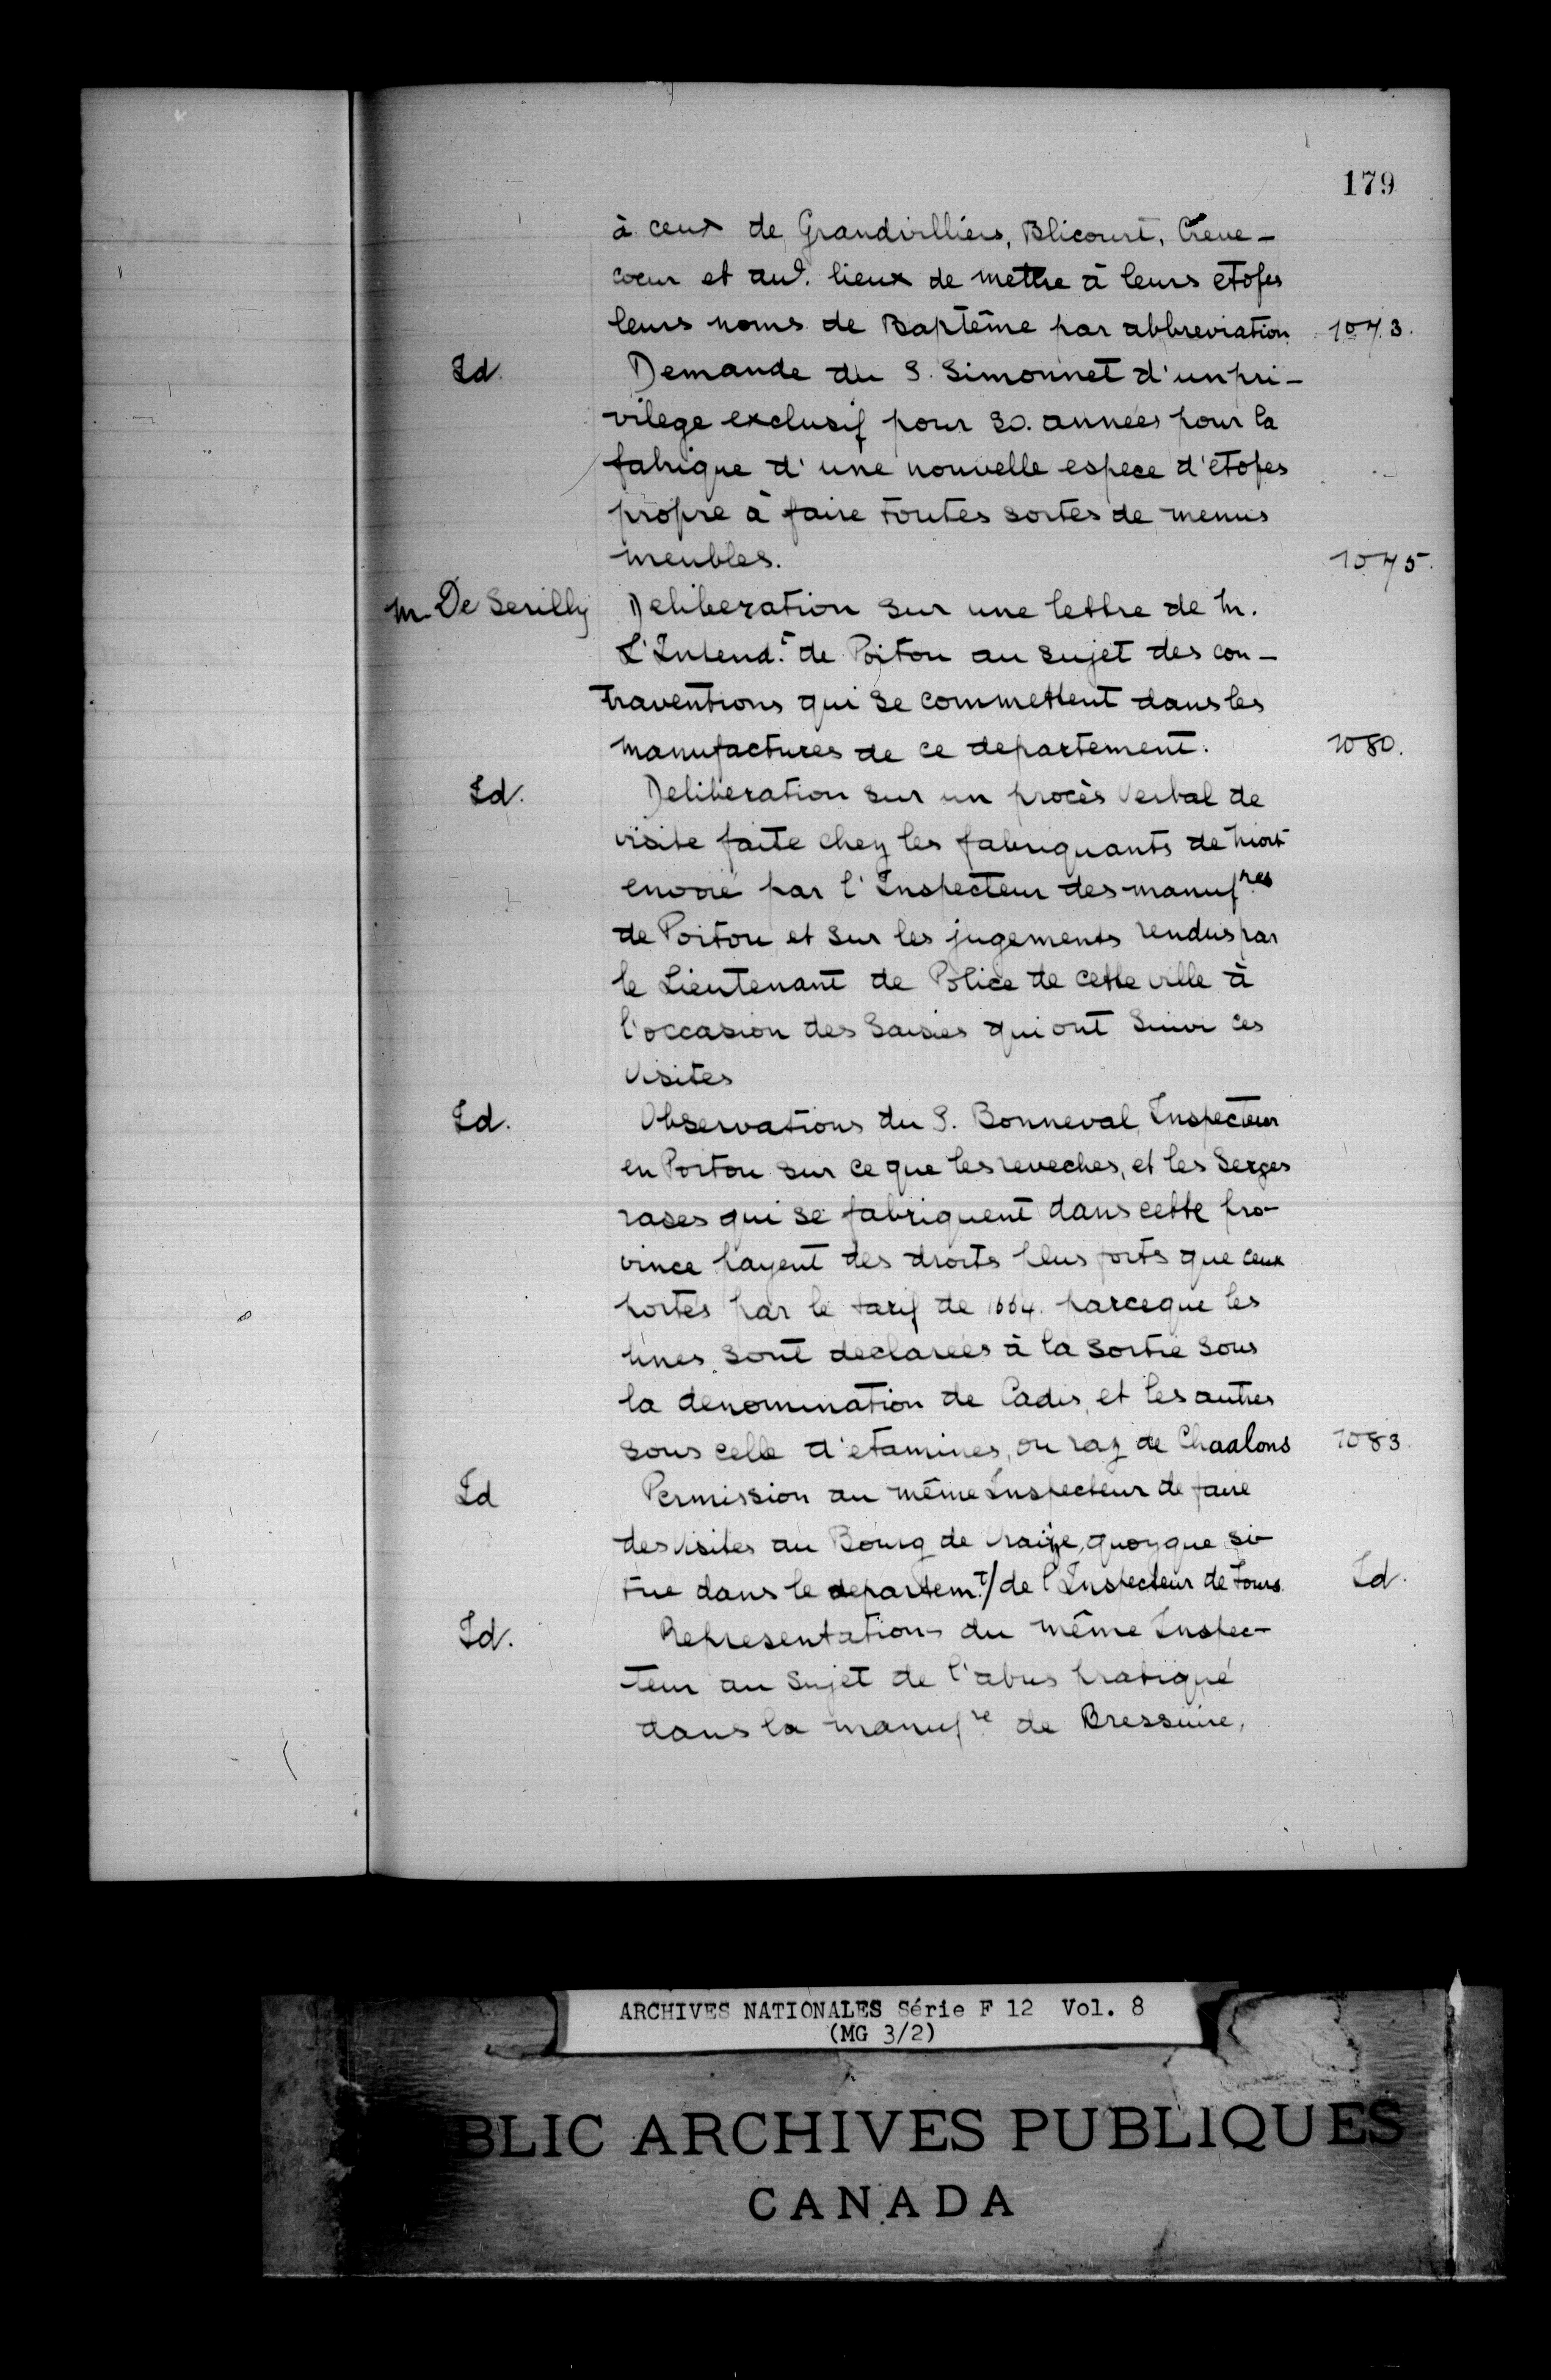 179
à ceux de Grandvilliers, Blicourt, Creve-
cœur et aud. lieux de mettre à leurs etofes
leurs noms de Baptême par abbreviation 1073.
Id. Demande du S. Simonnet d'un pri-
vilege exclusif pour 30. années pour la
fabrique d'une nouvelle espece d'etofes
propre à faire toutes sortes de menus
meubles. 1075.
M. De Serilly Deliberation sur une lettre de M.
L'Intend.t de Poitou au sujet des con-
traventions qui se commettent dans les
manufactures de ce departement. 1080.
Id. Deliberation sur un procès verbal de
visite faite chez les fabriquants de Niort
envoié par l'Inspecteur des manuf.res
de Poitou et sur les jugements rendus par
le Lieutenant de Police de cette ville à
l'occasion des saisies qui ont suivi ces
visites
Id. Observations du S. Bonneval, Inspecteur
en Poitou sur ce que les reveches, et les Serges
rases qui se fabriquent dans cette pro-
vince payent des droits plus forts que ceux
portés par le tarif de 1664. parceque les
unes sont declarées à la sortie sous
la denomination de Cadis, et les autres
sous celle d'etamines, ou raz de Chaalons 1083.
Id Permission au même Inspecteur de faire
des visites au Bourg de quoyque si-
tué dans le departem.t/ de l'Inspecteur de Tours. Id.
Id. Representations du même Inspec-
teur au sujet de l'abus pratiqué
dans la manuf.re de Bressuire,
ARCHIVES NATIONALES Série F 12 Vol. 8
(MG 3/2)
BLIC ARCHIVES PUBLIQUES
CANADA